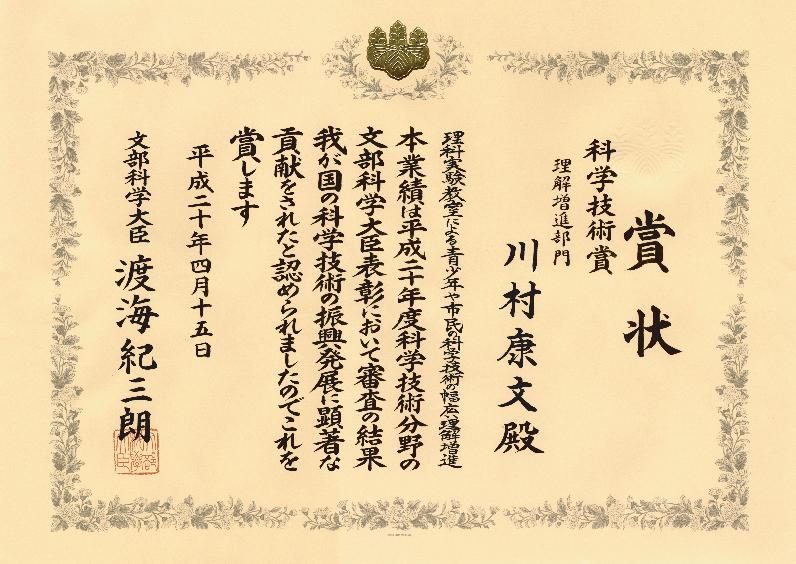 賞状
科学技術賞
理解増進部門
川村康文殿
理科実験教室による青少年や市民の科学技術の幅広い理解増進
本業績は平成二十年度科学技術分野の
文部科学大臣表彰において審査の結果
我が国の科学技術の振興発展に顕著な
貢献をされたと認められましたのでこれを
賞します
平成二十年四月十五日
文部科学大臣 渡海紀三朗